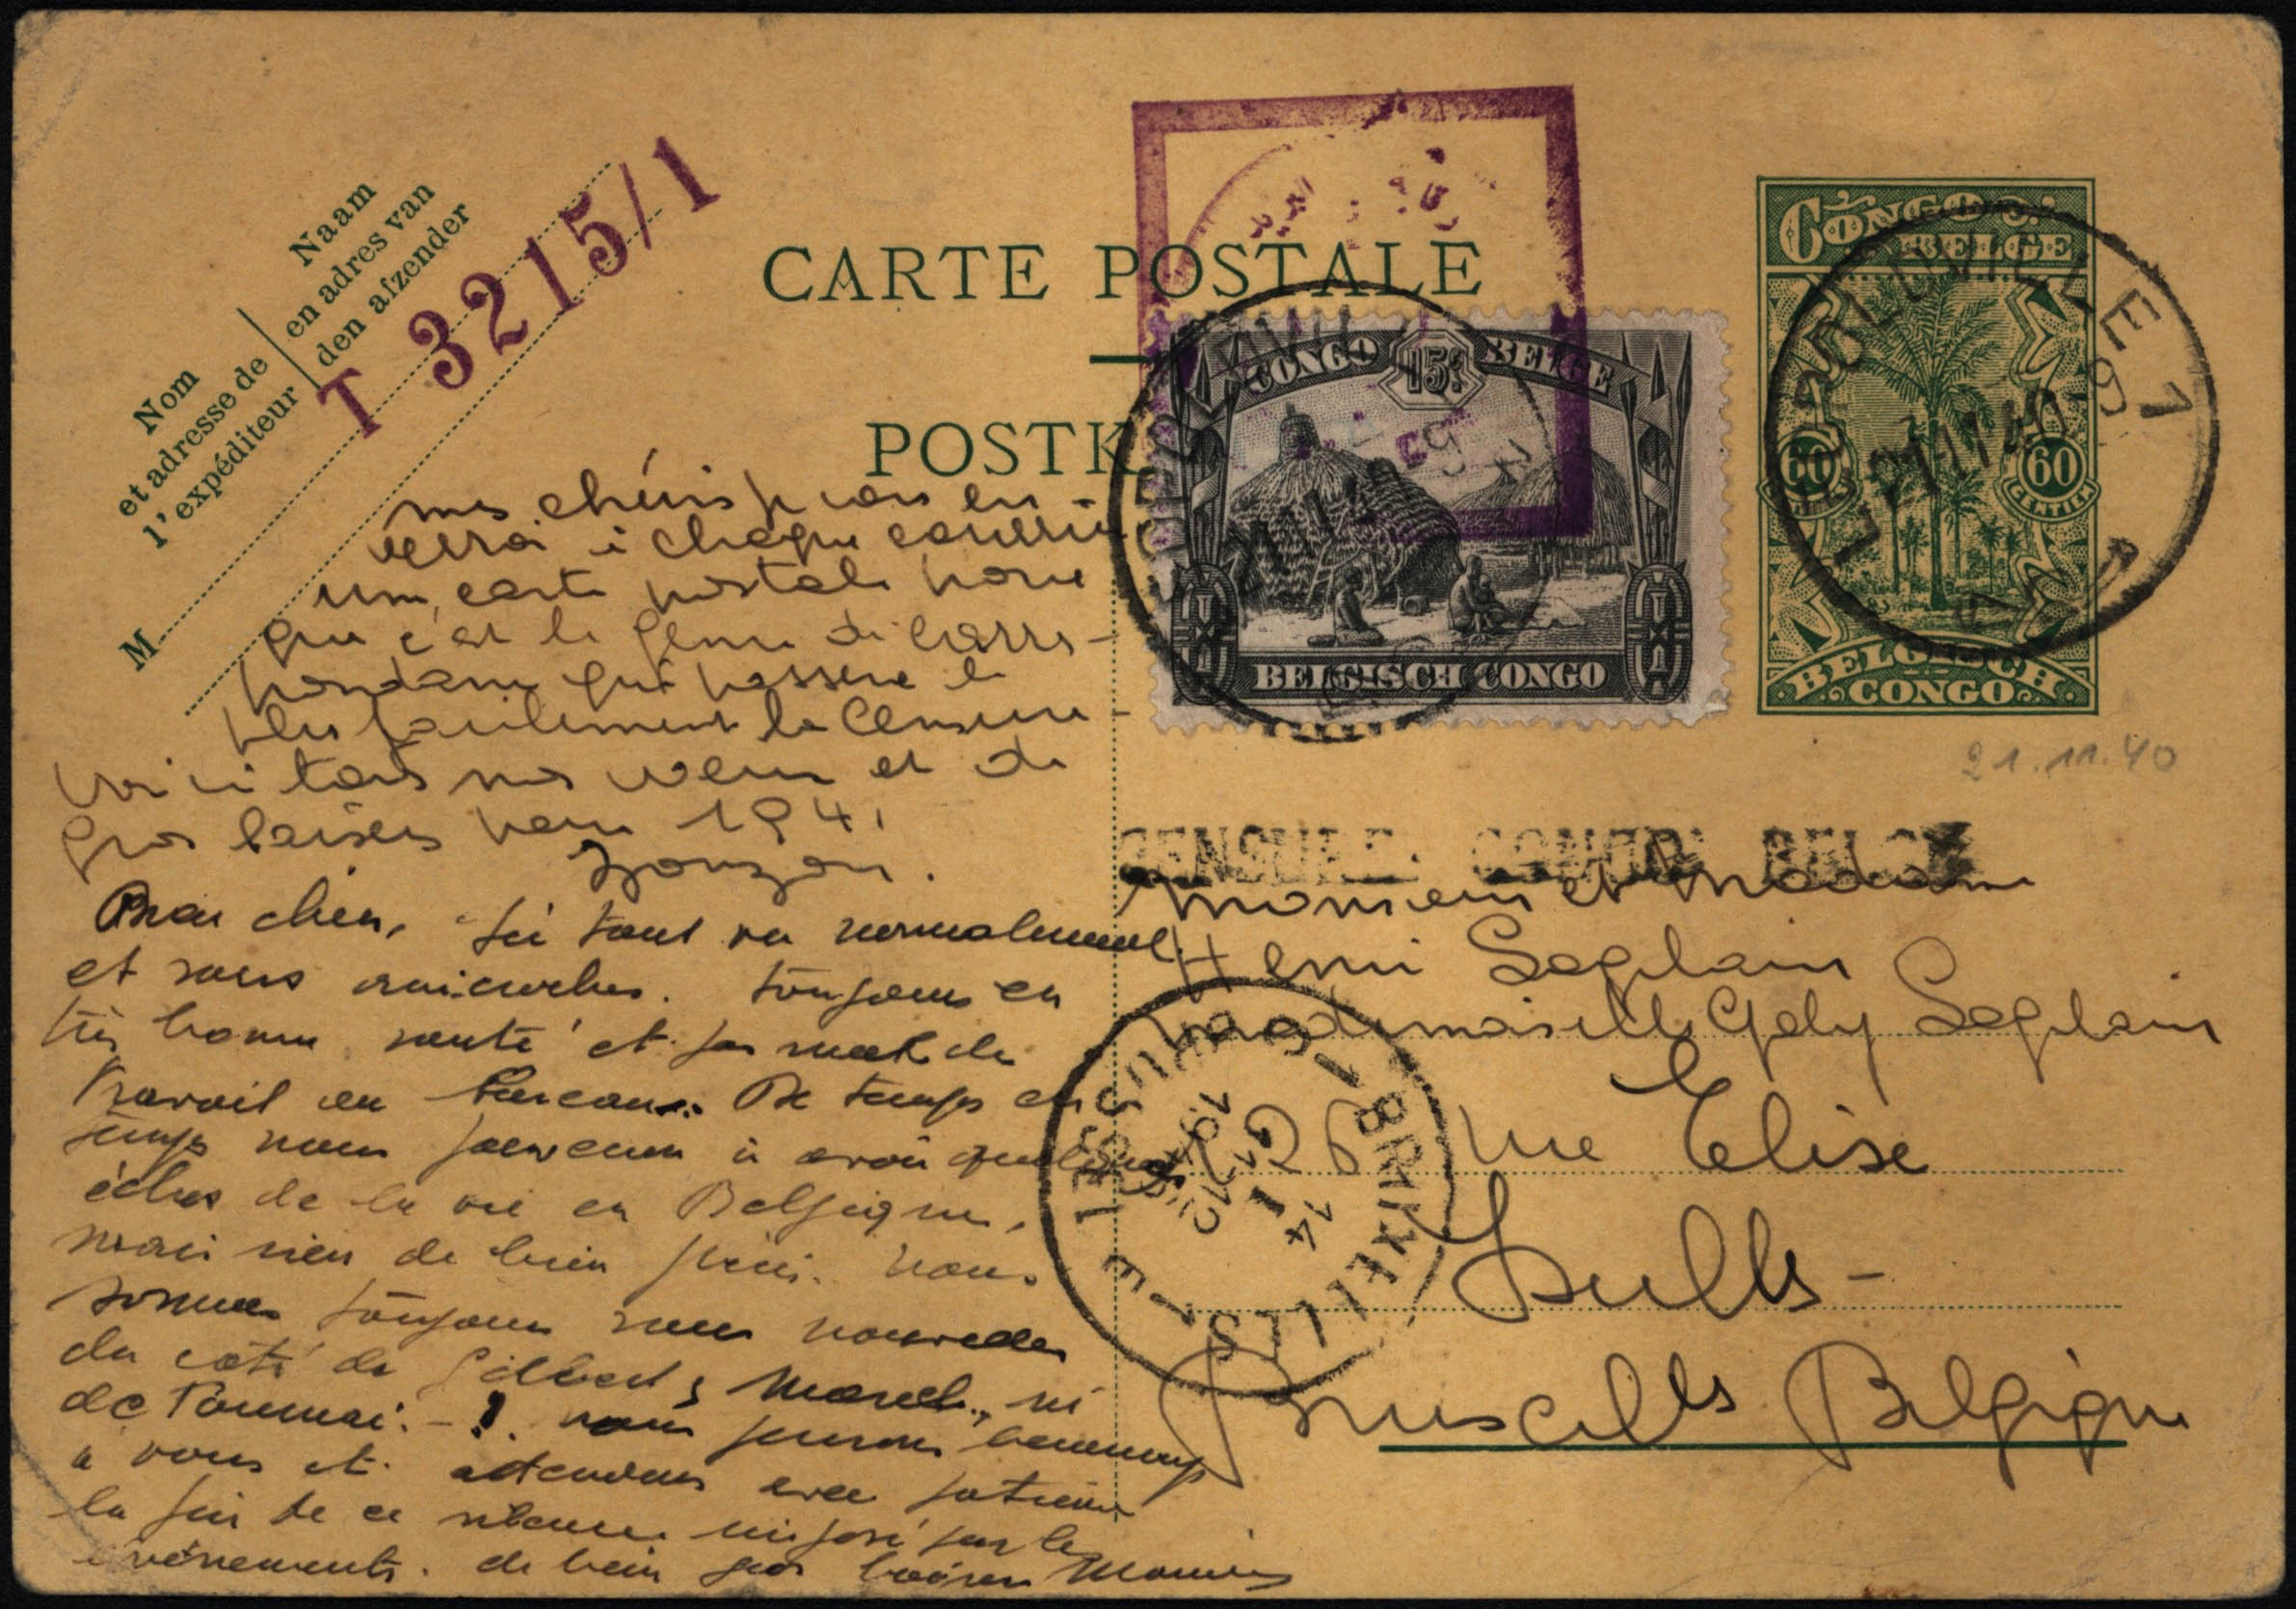 Nom
et adresse de
l'expéditeur
Naam
en adres van
den afzender
M
T 3215/1
CARTE POSTALE
POSTK
CONGO BELGE
15c
BELGISCH CONGO
CONGO BELGE
60
60
BELGISCH
CONGO
LEOPOLDVILLE 1
21.11.40
mes chéris je vous en-
verrai à chaque courrier
une carte postale parce
que c'est le genre de corres-
pondance qui passera le
plus facilement la censure-
voici tous nos vœux et de
gros baisers pour 1941
Zonzon.
Mon chien, Ici tout va normalement
et sans anicroches. Toujours en
très bonne santé et pas mal de
travail au bureau. De temps en
temps nous parvenons à avoir quelques
échos de la vie en Belgique,
mais rien de bien précis. Nous
sommes toujours sans nouvelles
du côté de Gilbert, Marcel, ni
de Tournai. - nous pensons beaucoup
à vous et attendons avec patience
la fin de ce silence imposé par les
événements. de bien gros baisers
21.11.40
CENSURE CONGO BELGE
Monsieur et Madame
Henri
Mademoiselle
26 rue Elise
Ixelles -
Bruxelles Belgique
1 BRUXELLES
BRUSSEL
14